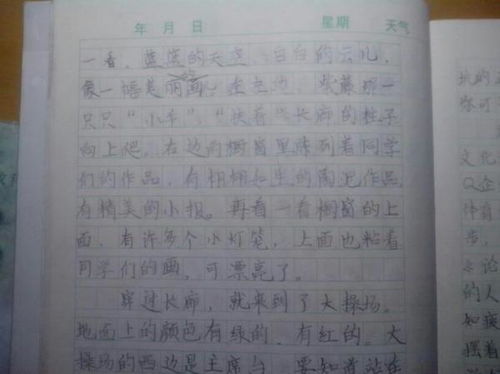 年 月 日 星期 天气
一看,蓝蓝的天空、白白的云儿,
像一幅美丽画,左左边,紫藤那一
只只“小手”,“扶着”长廊的柱子
向上爬,右边的橱窗里陈列着同学
们的作品,有栩栩如生的陶泥作品,
有精美的小报。再看一看橱窗的上
面,有许多个小灯笼,上面也粘着
同学们的画,可漂亮了。
穿过长廊,就来到了大操场。
地面上的颜色有绿的,有红的。大
操场的西边是主席台,要知道站在
文化
Q企
的人